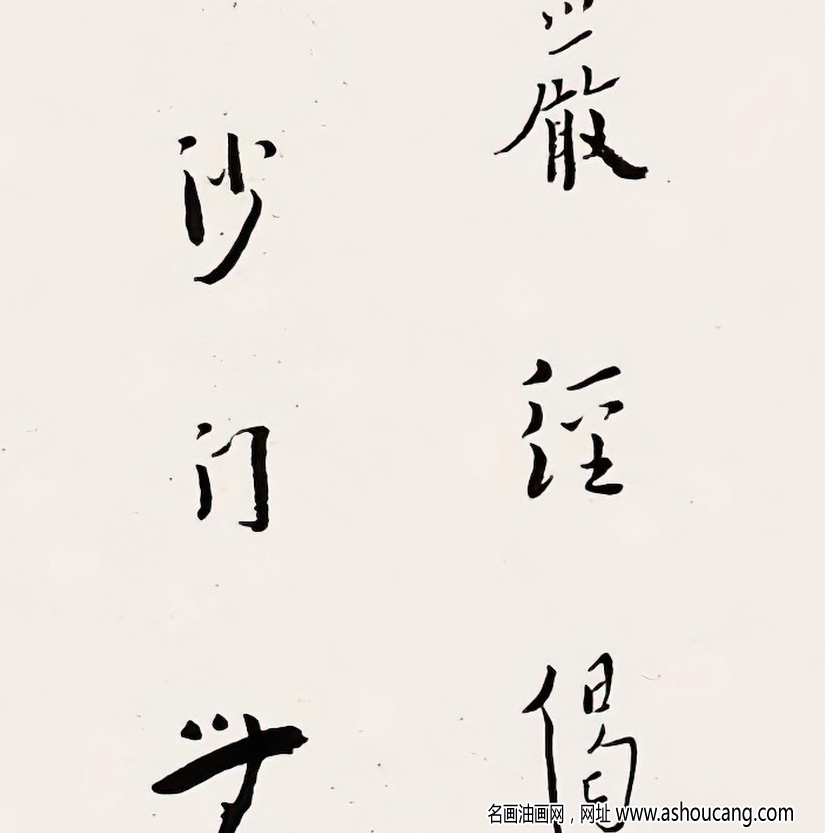 嚴經偈
沙门
名画油画网，网址 www.ashoucang.com